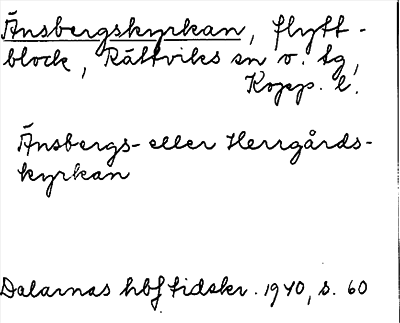 Änsbergskyrkan, flytt-
block, Rättviks sn o. tg,
Kopp. l.
Änsbergs- eller Herrgårds-
kyrkan
Dalarnas hbf tidskr. 1940, s. 60